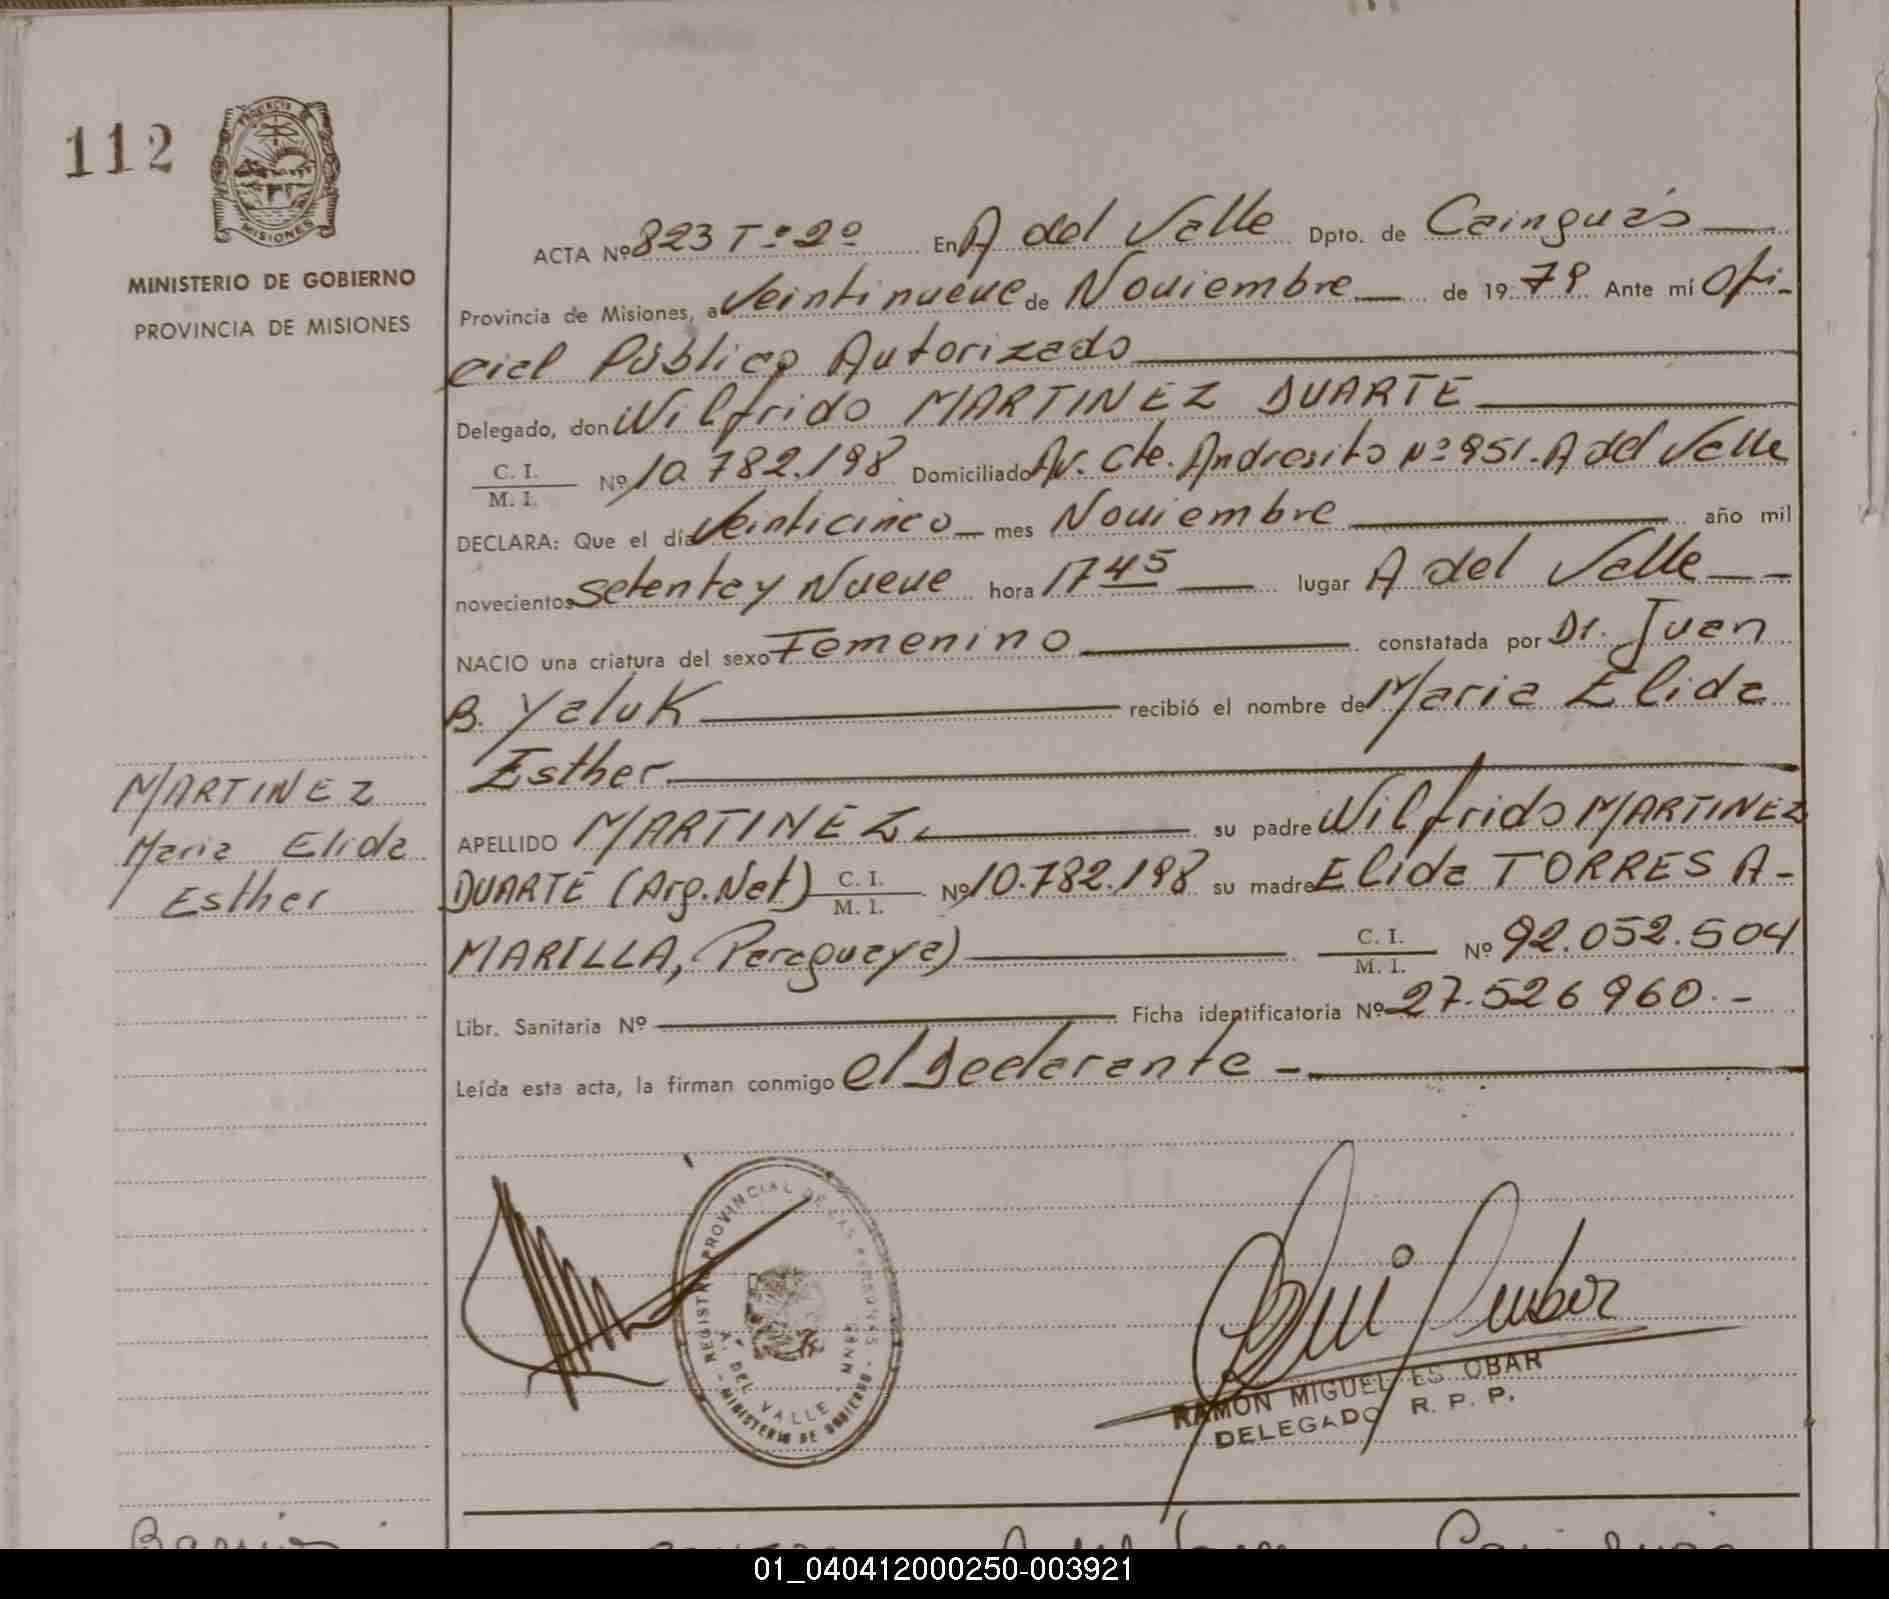 112
PROVINCIA
MISIONES
MINISTERIO DE GOBIERNO
PROVINCIA DE MISIONES
ACTA Nº 823 Tº 2º En A del Valle Dpto. de Cainguás
Provincia de Misiones, a Veintinueve de Noviembre de 19 79 Ante mí Ofi-
cial Público Autorizado
Delegado, don Wilfrido MARTINEZ DUARTE
C. I.
M. I. Nº 10.782.198 Domiciliado Av. Cte. Andresito Nº 951. A del Valle
DECLARA: Que el día Veinticinco mes Noviembre año mil
novecientos Setenta y Nueve hora 17 45 lugar A del Valle
NACIO una criatura del sexo Femenino constatada por Dr. Juan
B. Yaluk recibió el nombre de Maria Elida
Esther
MARTINEZ
Maria Elida
Esther
APELLIDO MARTINEZ su padre Wilfrido MARTINEZ
DUARTE (Arg. Nat) C. I.
M. I. Nº 10.782.198 su madre Elida TORRES A-
MARILLA, (Paraguaya) C. I.
M. I. Nº 92.052.504
Libr. Sanitaria Nº Ficha identificatoria Nº 27.526 960.-
Leída esta acta, la firman conmigo el Declarante -
REGISTRO PROVINCIAL DE LAS PERSONAS - MINISTERIO DE GOBIERNO
A. DEL VALLE - MNES
RAMON MIGUEL ES OBAR
DELEGADO R. P. P.
01_040412000250-003921